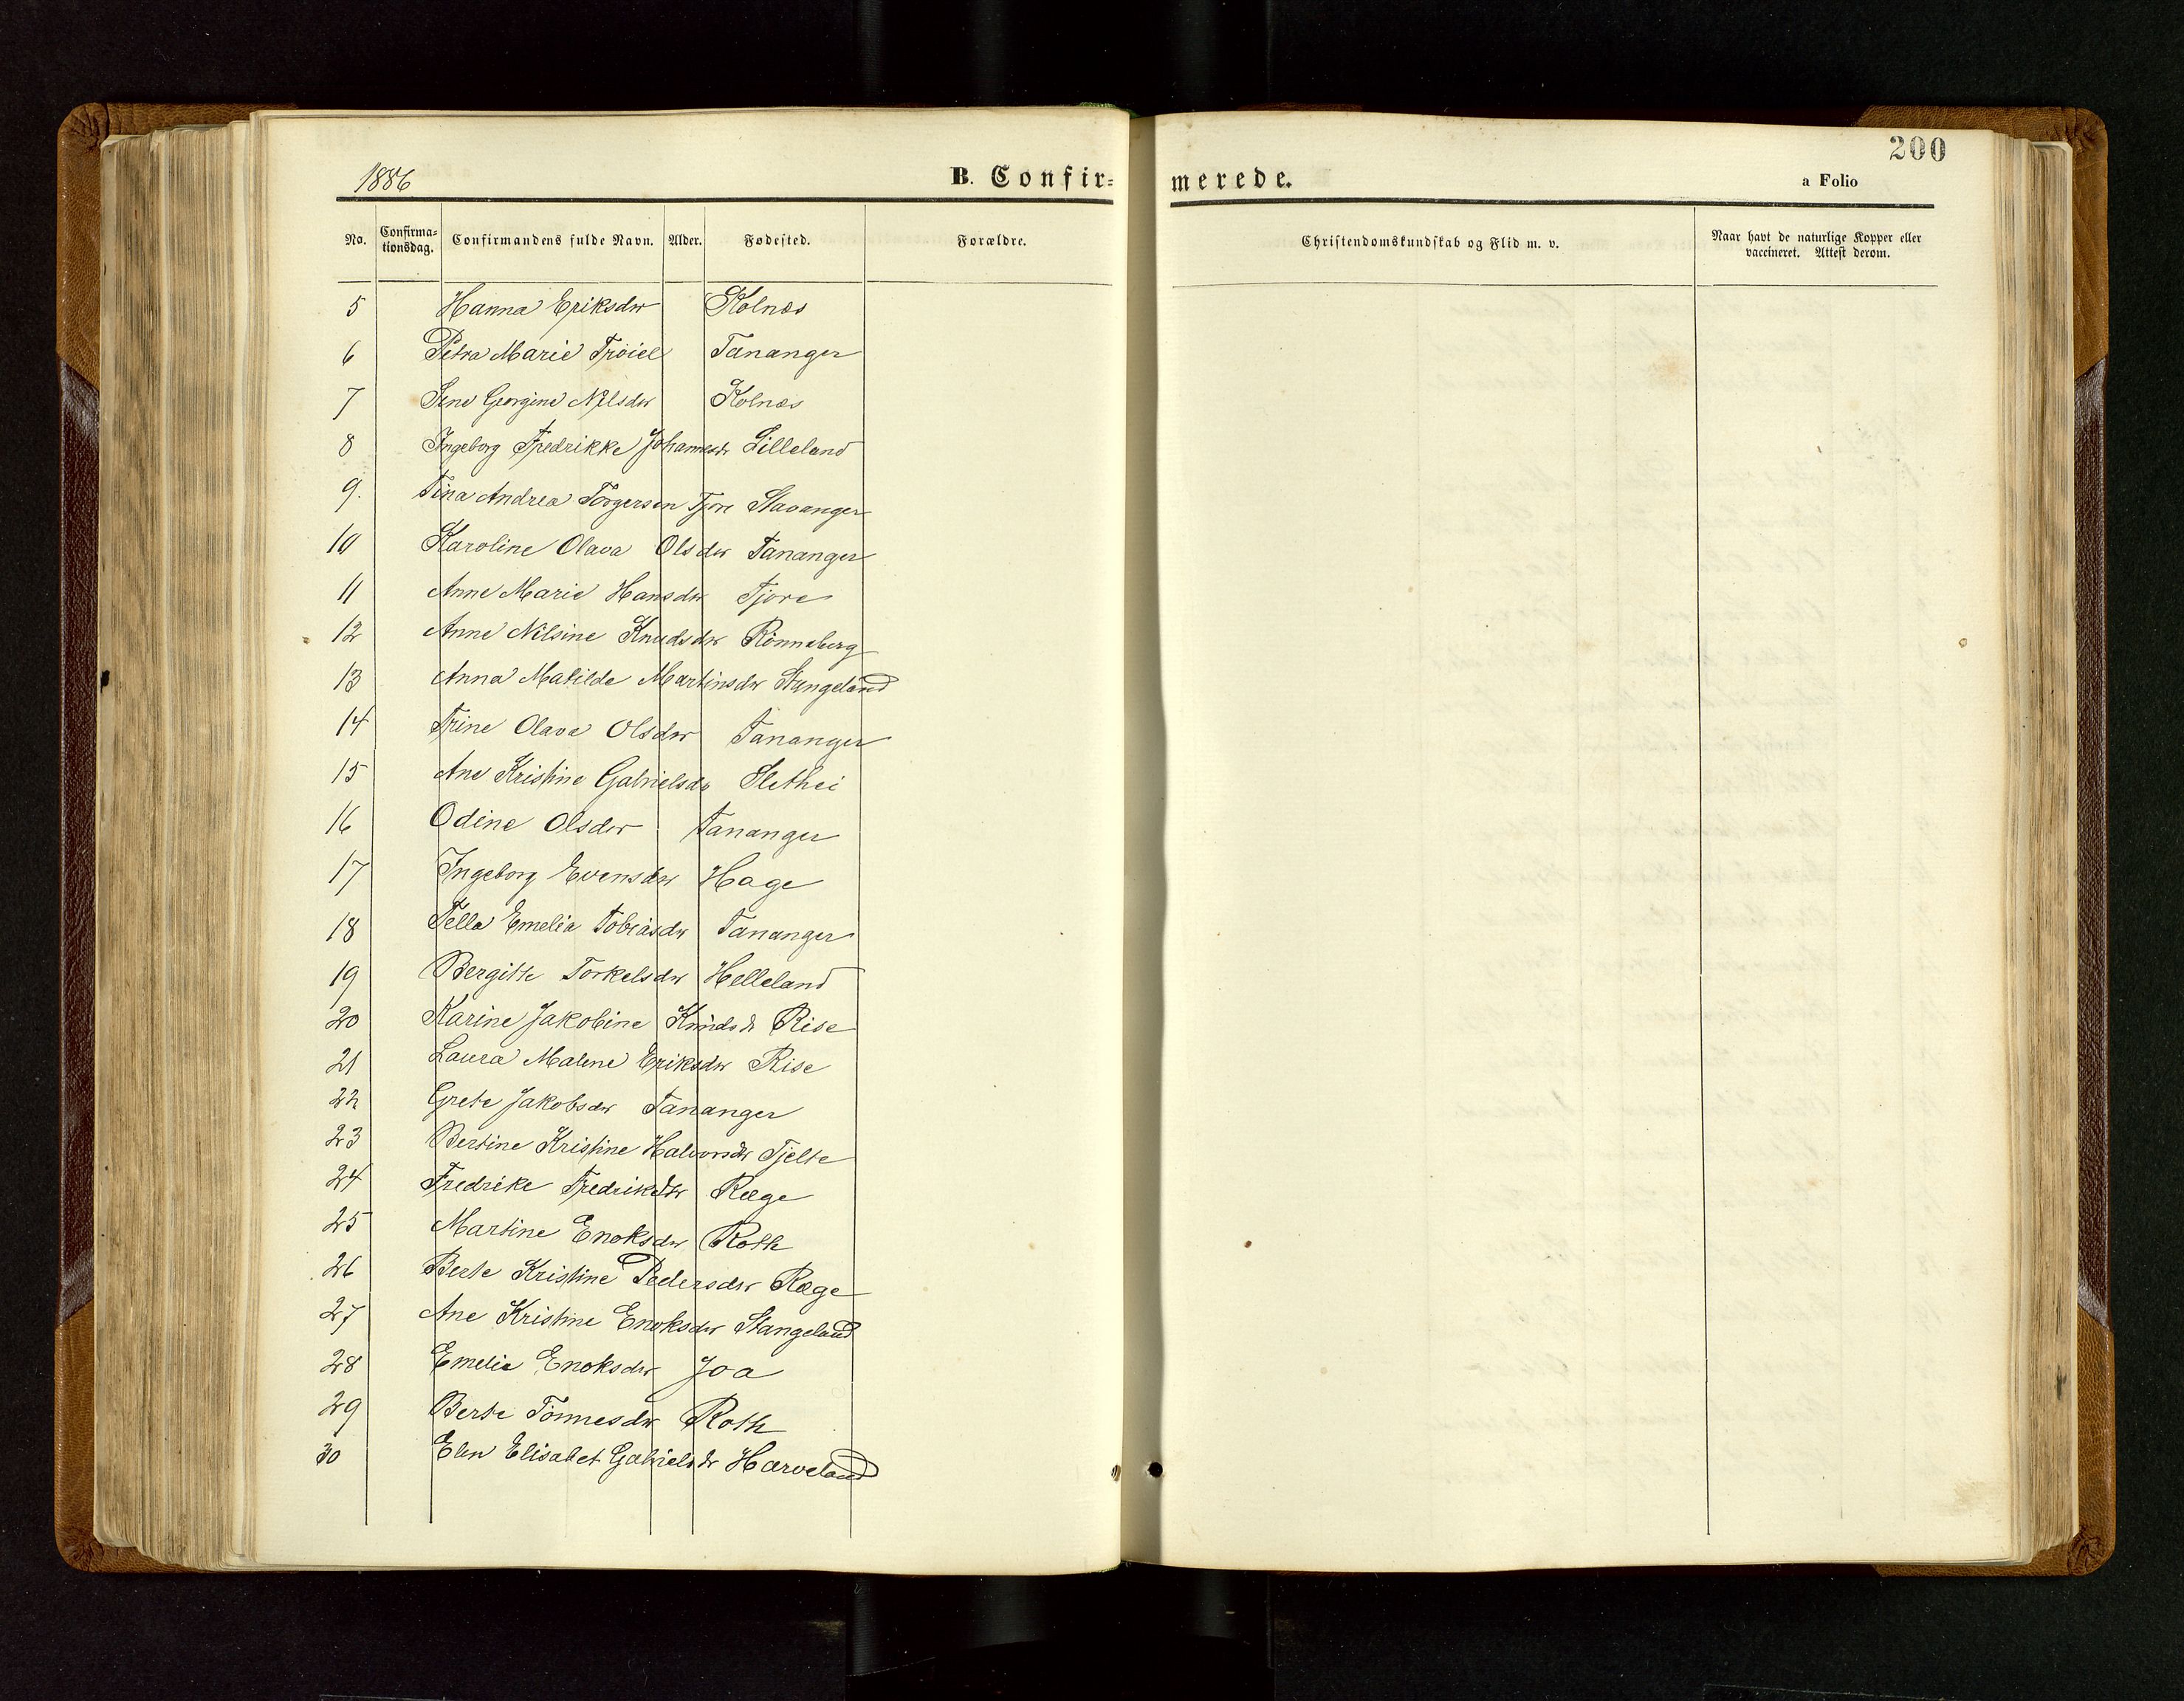 200
1886 B. Confir= merede. a Folio
No. Confirma=tionsdag. Confirmandens fulde Navn. Alder. Fødested. Forældre. Christendomskundskab og Flid m. v. Naar havt de naturlige Kopper eller vaccineret. Attest derom.
5 Hanna Eriksdtr Kolnæs
6 Petra Marie Trøiel Tananger
7 Georgine Nilsdtr Kolnæs
8 Ingeborg Fredrikke Johannesdr Lilleland
9. Tina Andrea Torgersen Tjore Stavanger
10 Karoline Olava Olsdtr Tananger
11 Anne Marie Hansdtr Tjore
12 Anne Nilsine Knudsdtr Rönneberg
13 Anna Matilde Martinsdtr Stangeland
14 Trine Olava Olsdtr Tananger
15 Ane Kristine Gabrielsdtr Slethei
16 Odine Olsdtr Tananger
17 Ingeborg Evensdtr Hage
18 Tella Emelia Tobiasdtr Tananger
19 Bergitte Torkelsdtr Helleland
20 Karine Jakobine Knudsdr Rise
21 Laura Malene Eriksdtr Rise
22 Grete Jakobsdtr Tananger
23 Bertine Kristine Halvorsdtr Tjelte
24 Fredrike Fredriksdtr Ræge
25 Martine Enoksdtr Roth
26 Berte Kristine Pedersdtr Ræge
27 Ane Kristine Enoksdtr Stangeland
28 Emelie Enoksdtr Joa
29 Berte Tönnesdtr Roth
30 Elen Elisabet Gabrielsdr Harveland